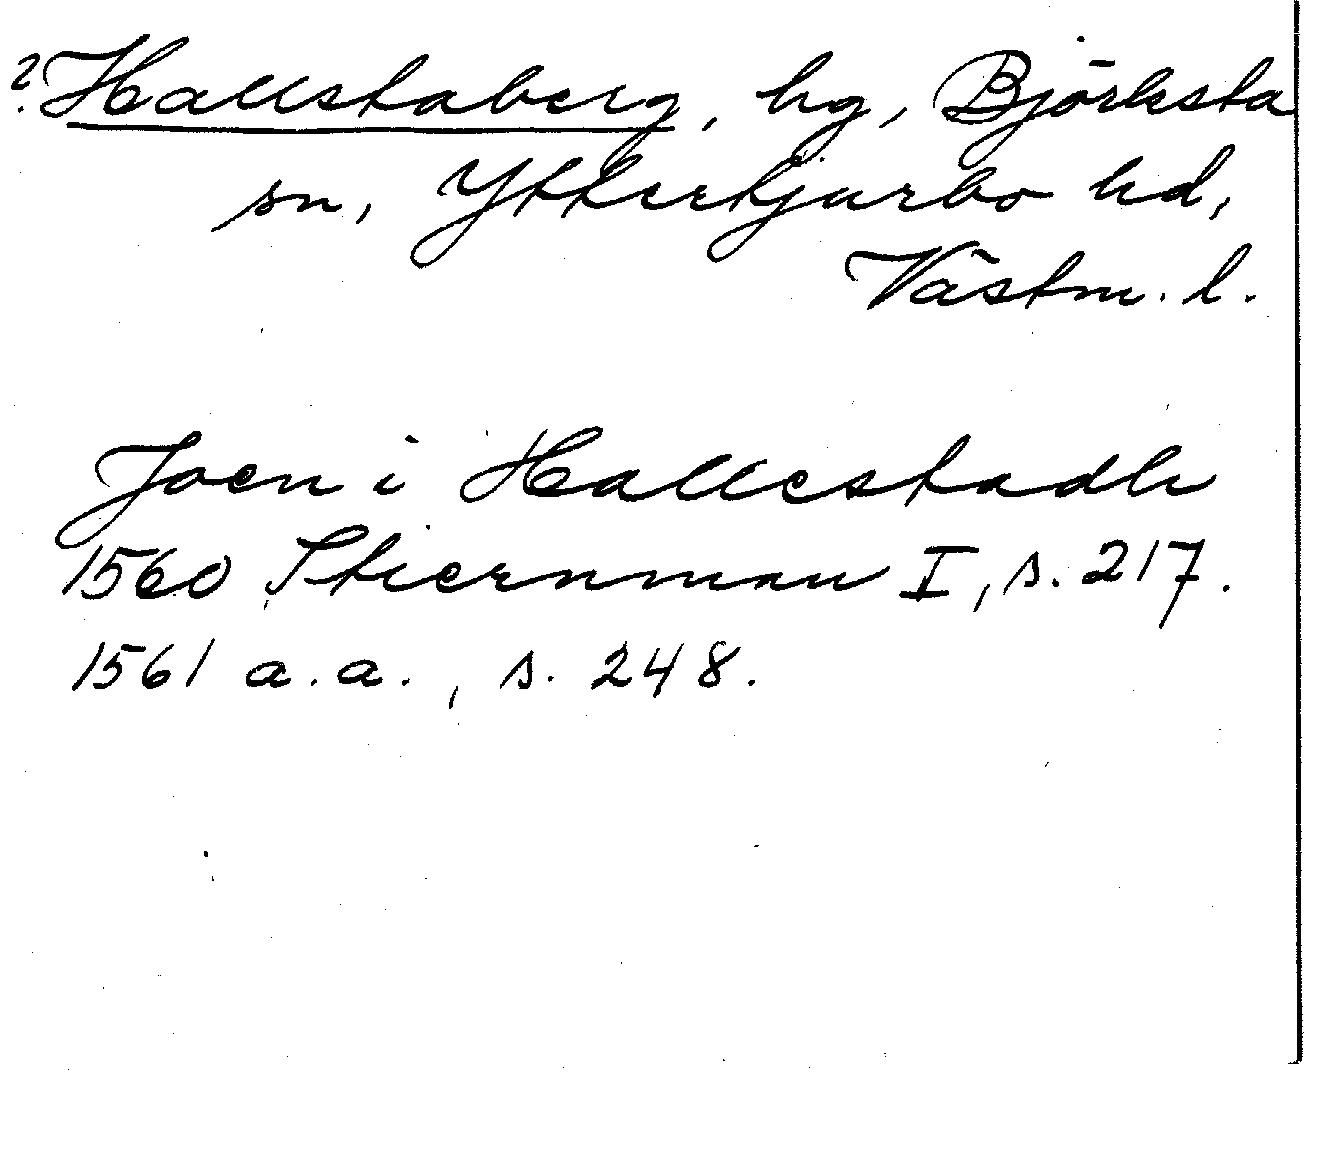 ? Hallstaberg, hg, Björksta
sn, Yttertjurbo hd,
Västm. l.
Joen i Hallestadh
1560 Stiernman I, s. 217.
1561 a.a., s. 248.